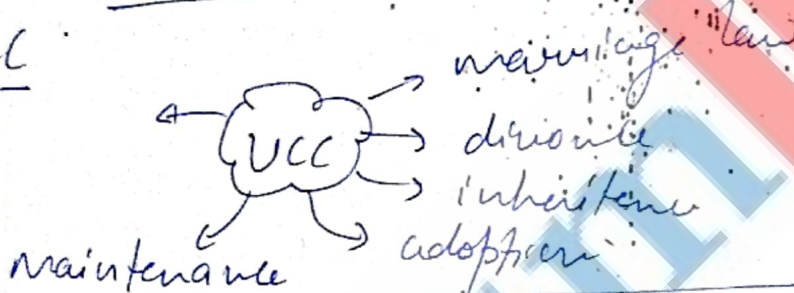 C
marriage law
UCC
divorce
inheritance
adoption
maintenance